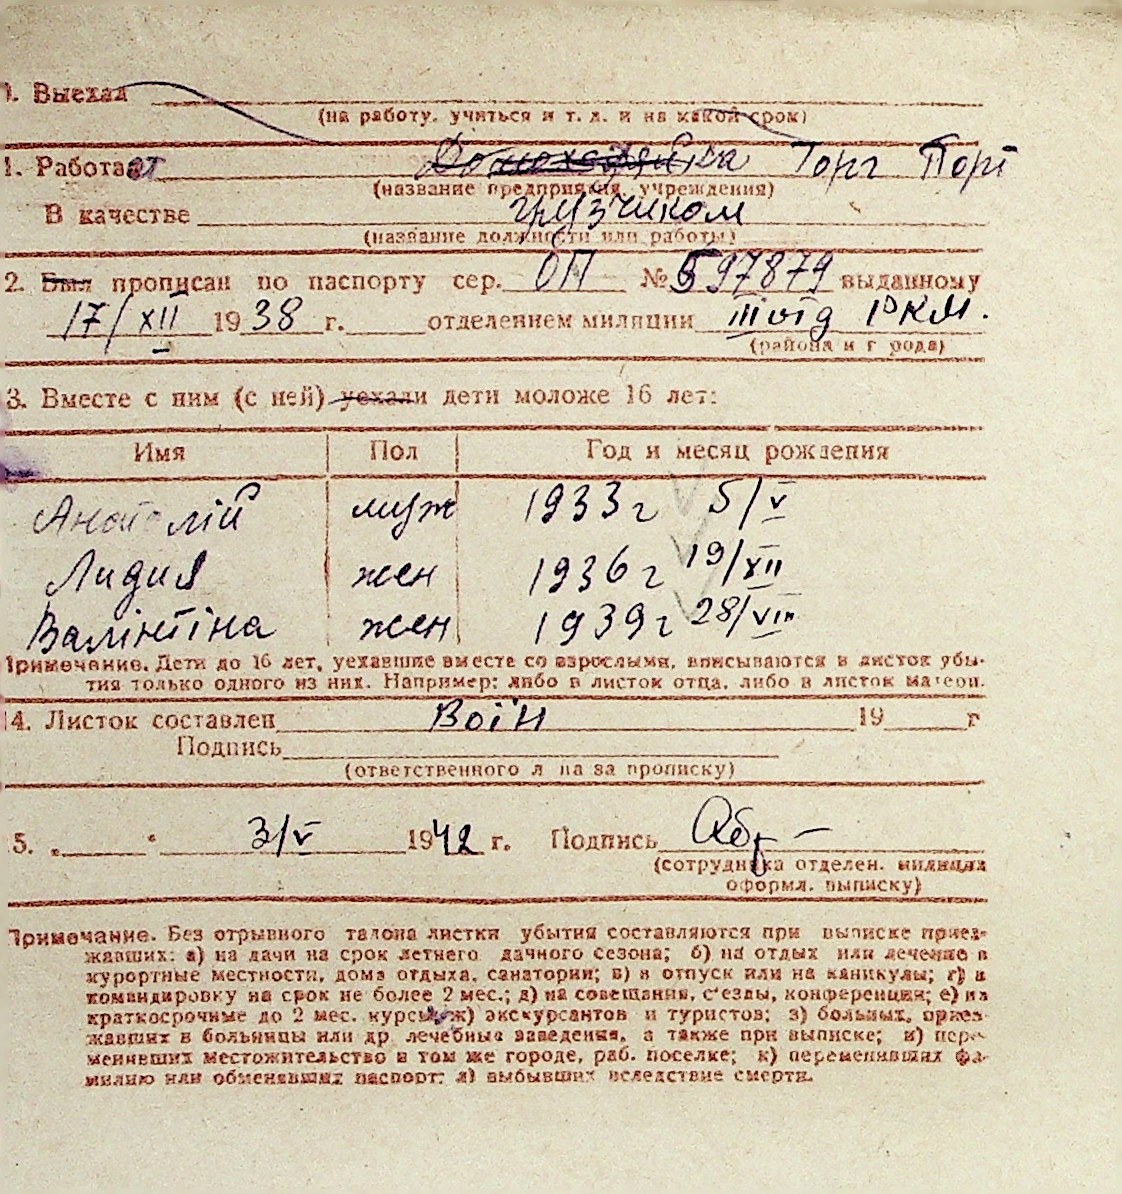 0. Выехал
(на работу, учиться и т. д. и на какой срок)
1. Работает Домохозяйка Торг Порт
(название предприятия, учреждения)
В качестве грузчиком
(название должности или работы)
2. Был прописан по паспорту сер. ОП № 597879 выданному
17/XII 1938 г. отделением милиции III отд РКМ.
(района и г рода)
3. Вместе с ним (с ней) уехали дети моложе 16 лет:
Имя Пол Год и месяц рождения
Анатолій муж 1933 г 5/V
Лидия жен 1936 г 19/XII
Валінтіна жен 1939 г 28/VIII
Примечание. Дети до 16 лет, уехавшие вместе со взрослыми, вписываются в листок убы-
тия только одного из них. Например: либо в листок отца, либо в листок матери.
4. Листок составлен Воін 19 г
Подпись
(ответственного л на за прописку)
5. „ “ 3/V 1942 г. Подпись
(сотрудника отделен. милиции
оформл. выписку)
Примечание. Без отрывного талона листки убытия составляются при выписке приез-
жавших: а) на дачи на срок летнего дачного сезона; б) на отдых или лечение в
курортные местности, дома отдыха, санатории; в) в отпуск или на каникулы; г) в
командировку на срок не более 2 мес.; д) на совещания, с'езды, конференции; е) на
краткосрочные до 2 мес. курсы; ж) экскурсантов и туристов; з) больных, приез-
жавших в больницы или др. лечебные заведения, а также при выписке; и) пере-
менивших местожительство в том же городе, раб. поселке; к) переменявших фа-
милию или обменявших паспорт; л) выбывших вследствие смерти.